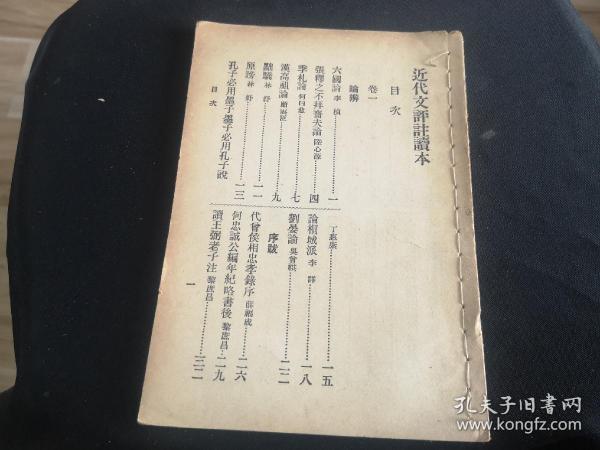 近代文評註讀本
目次
卷一
論辨
六國論 李楨 一
張釋之不拜嗇夫論 陸心源 四
季札論 何曰愈 七
漢高祖論 九
黜驕 林紓 一一
原謗 林紓
孔子必用墨子墨子必用孔子說 一三
丁惠康 一五
論桐城派 李詳 一八
劉晏論 吳曾祺 二二
序跋
代曾侯相忠孝錄序 薛福成 二六
何忠誠公編年紀略書後 黎庶昌 二九
讀王弼老子注 黎庶昌 三二
目次
一
孔夫子旧书网
www.kongfz.com